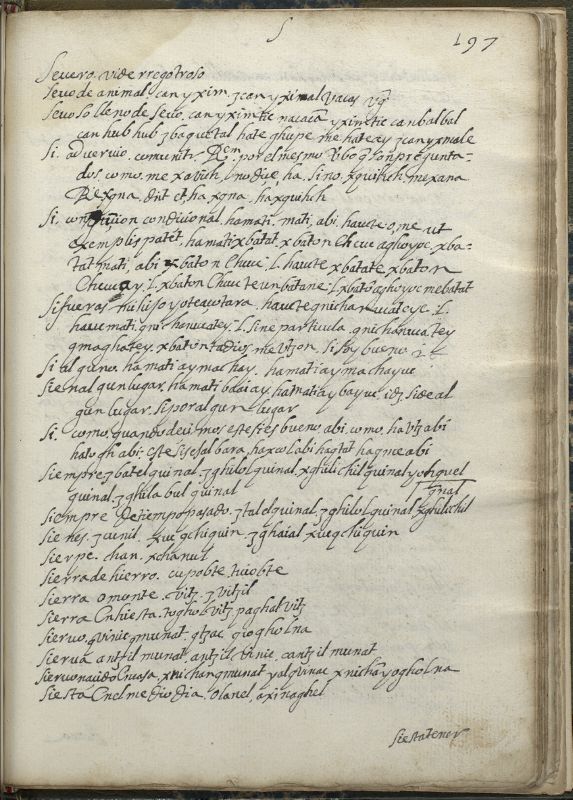 S
197
Severo. vide rregotroso
sevo de animal. canyxim. zcanyximal vacas vg
sevoso lleno de sevo, canyximtic nacaca yximtic canbalbal
can hub hub zbaquetal hate ghupe me hateay zcanyxmale
si. advervio. comunitr. Rem. por el mesmo vbo q son pregunta-
dos como. me xavich, l. no dije, ha. si no. xquihich mexana
Rexgna. dint et ha xgna, haxquihich
si. condicional. hamati. mati, abi. havete o, me ut
exemplis patet, hamati xbatat, xbaton Cheve aghoyoc. xba-
tat mati, abi xbaton Cheve, l. havete xbatate xbaton
Cheve ay, l. xbaton Chavete unbatane, l. xbato aghoyoc mebatat
si fueras mi hijo yo te açotara. havete qnichan vateye. l.
have mati. qnichanucatey. l. sine particula. qnichanucatey
qmaghatey. xbaton tadios, me Utzon. si soy bueno
si alguno. hamati aymac hay. hamati aymachayuc
si en algun lugar. hamati bdaiay, hatnatiay bayuc idz si de al
gun lugar. si por algun lugar
si. como, quando decimos este si es bueno abi. como. ha Utz abi
hatogh abi. este si se sal bara, haxcol abi hagtat hagne abi
siempre zbatel quinal. zghilol quinal, xghulichil quinal yothquel
quinal. zghula bul quinal
siempre De tiempo pasado. ztalel quinal, zghilol quinal zghulichil
qnal
sienes. zcunil. xueqchiquin zghaial xueqchiquin
sierpe. chan. xchanul
sierra de hierro. cupobte, huobte
sierra o monte. vitz. z vitzil
sierra Enhiesta. toghol vitz paghal vitz
siervo, qvinic qmunat. qtzac. qiogholna
sierva antzil munat, antzil vinic, cantzil munat
siervo nacido En casa, xnichanqmunat yalqvinac xnichayogholna
siesta En el medio dia, olanel, axinaghel
siesta tener